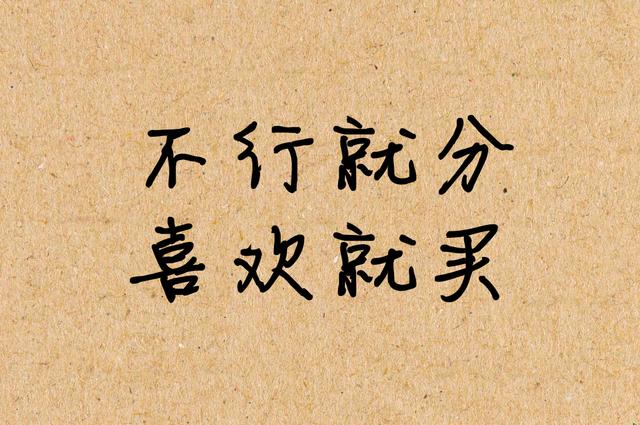 不行就分
喜欢就买